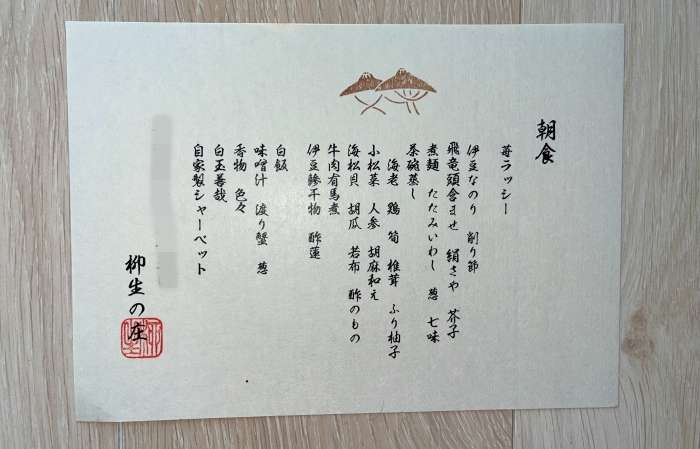 朝食
苺ラッシー
伊豆なのり　削り節
飛竜頭含ませ　絹さや　芥子
煮麺　たたみいわし　葱　七味
茶碗蒸し
海老　鶏　筍　椎茸　ふり柚子
小松菜　人参　胡麻和え
海松貝　胡瓜　若布　酢のもの
牛肉有馬煮
伊豆鯵干物　酢蓮
白飯
味噌汁　渡り蟹　葱
香物　色々
白玉善哉
自家製シャーベット
柳生の庄